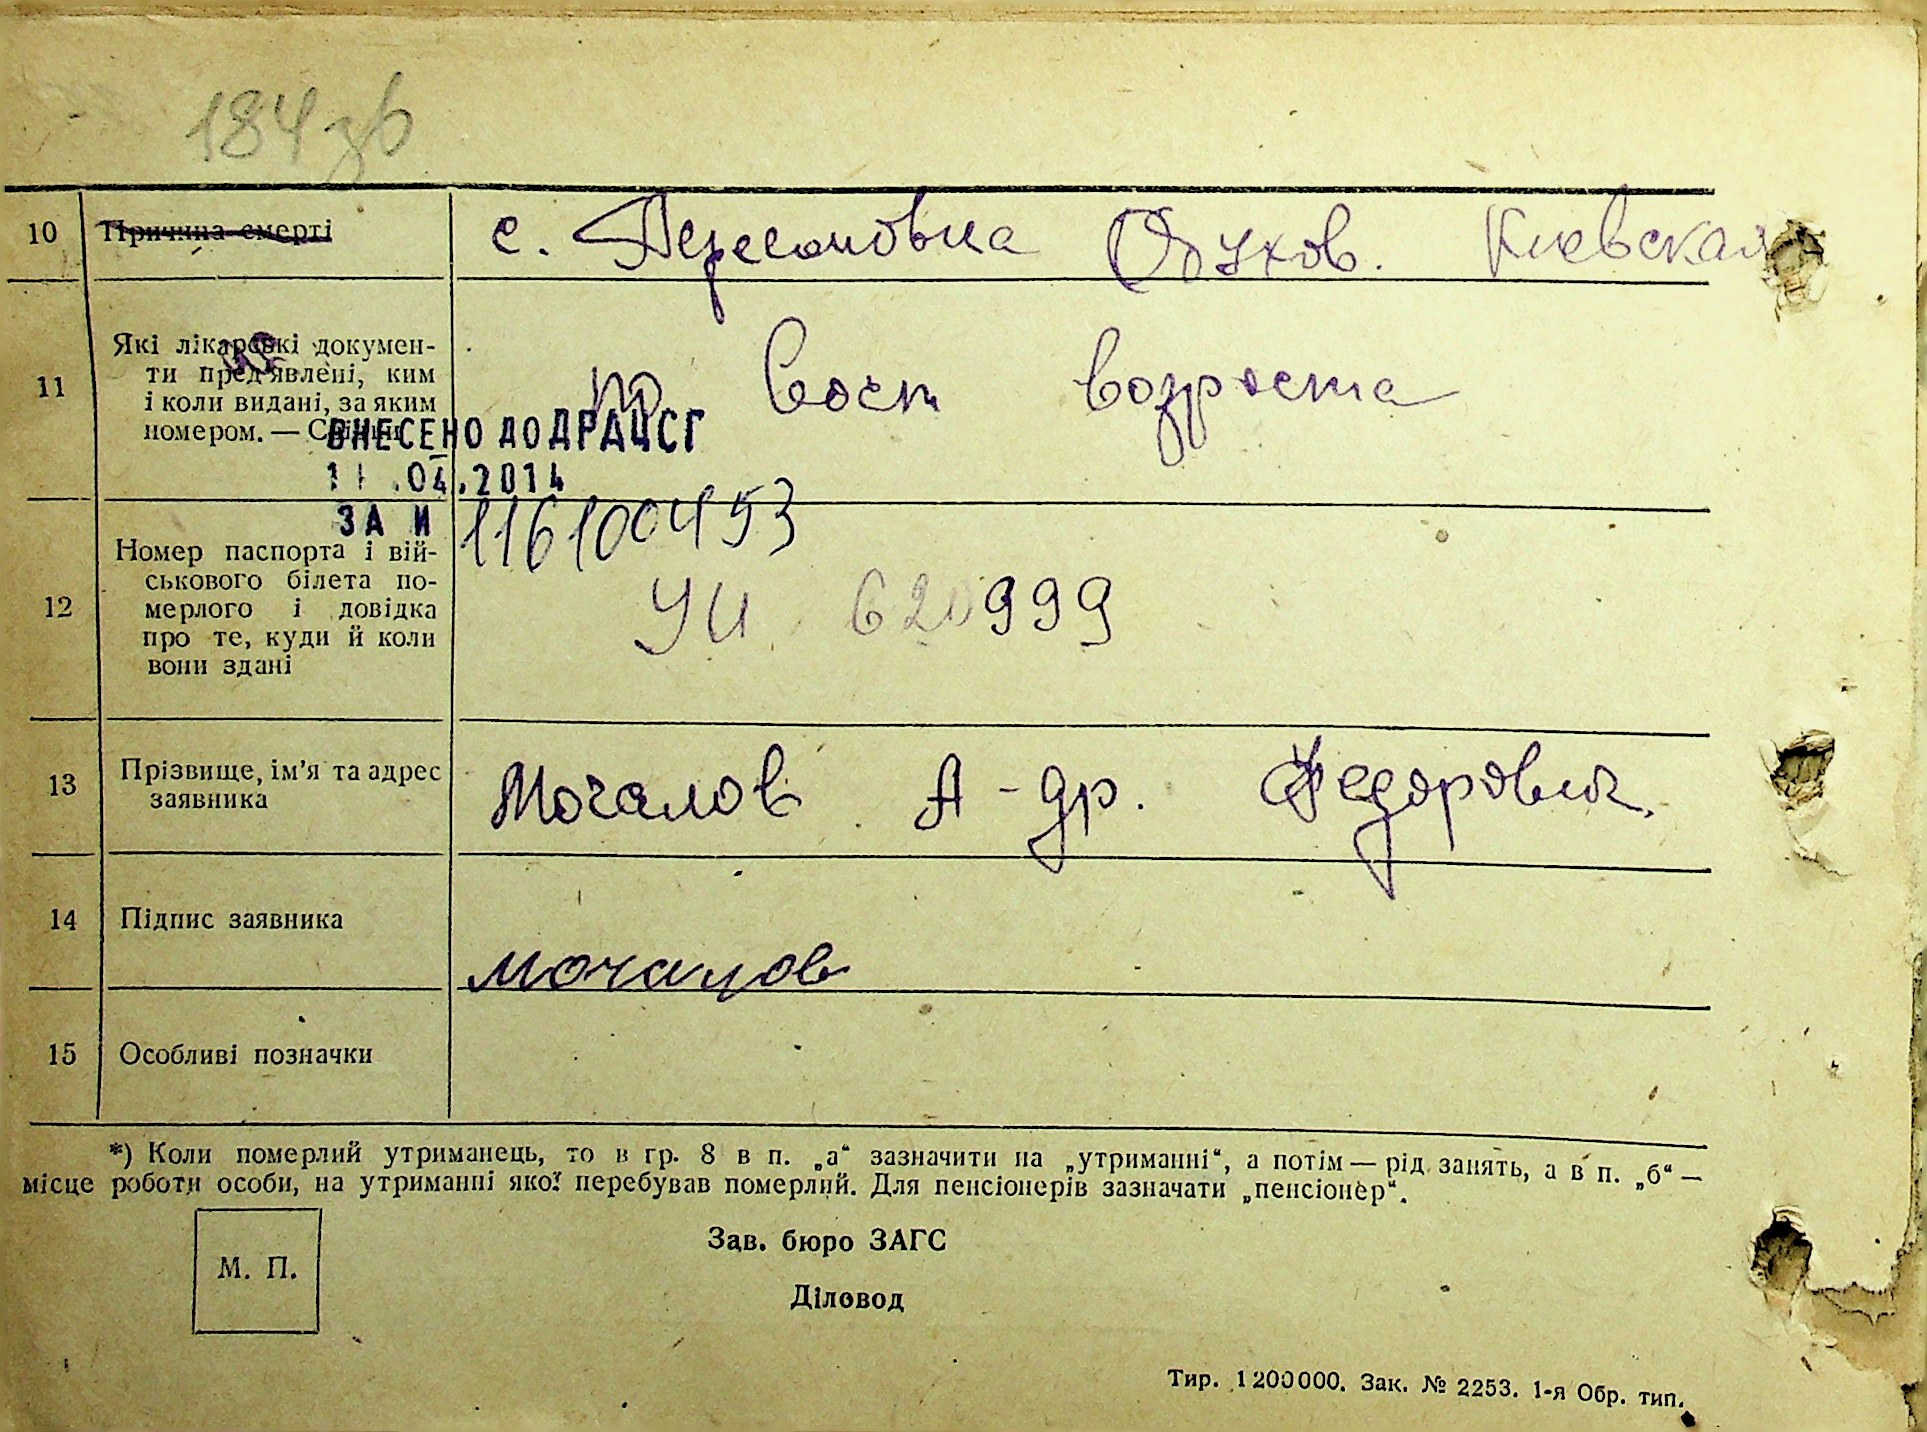 184 зв
10 Причина смерті с. Дерем��овка Обухов. Киевская
Які лікарські докумен-
11 ти пред'явлені, ким по вост возроста
і коли видані, за яким
номером. —
ВНЕСЕНО ДО ДРАЦСГ
11.04.2014
ЗА И 1161004953
Номер паспорта і вій-
ськового білета по-
12 мерлого і довідка УИ 620999
про те, куди й коли
вони здані
13 Прізвище, ім'я та адрес Мочалов А-др. Федорович.
заявника
14 Підпис заявника
Мочалов
15 Особливі позначки
*) Коли померлий утриманець, то в гр. 8 в п. „а“ зазначити на „утриманні“, а потім — рід занять, а в п. „б“ —
місце роботи особи, на утриманні якої перебував померлий. Для пенсіонерів зазначати „пенсіонер“.
Зав. бюро ЗАГС
М. П.
Діловод
Тир. 1200000. Зак. № 2253. 1-я Обр. тип.